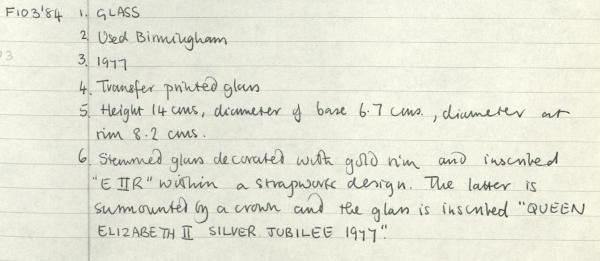 F103'84 1. GLASS
2. Used Birmingham
3. 1977
4. Transfer printed glass
5. Height 14 cms, diameter of base 6.7 cms., diameter at
rim 8.2 cms.
6. Stemmed glass decorated with gold rim and inscribed
"E II R" within a strapwork design. The latter is
surmounted by a crown and the glass is inscribed "QUEEN
ELIZABETH II SILVER JUBILEE 1977".